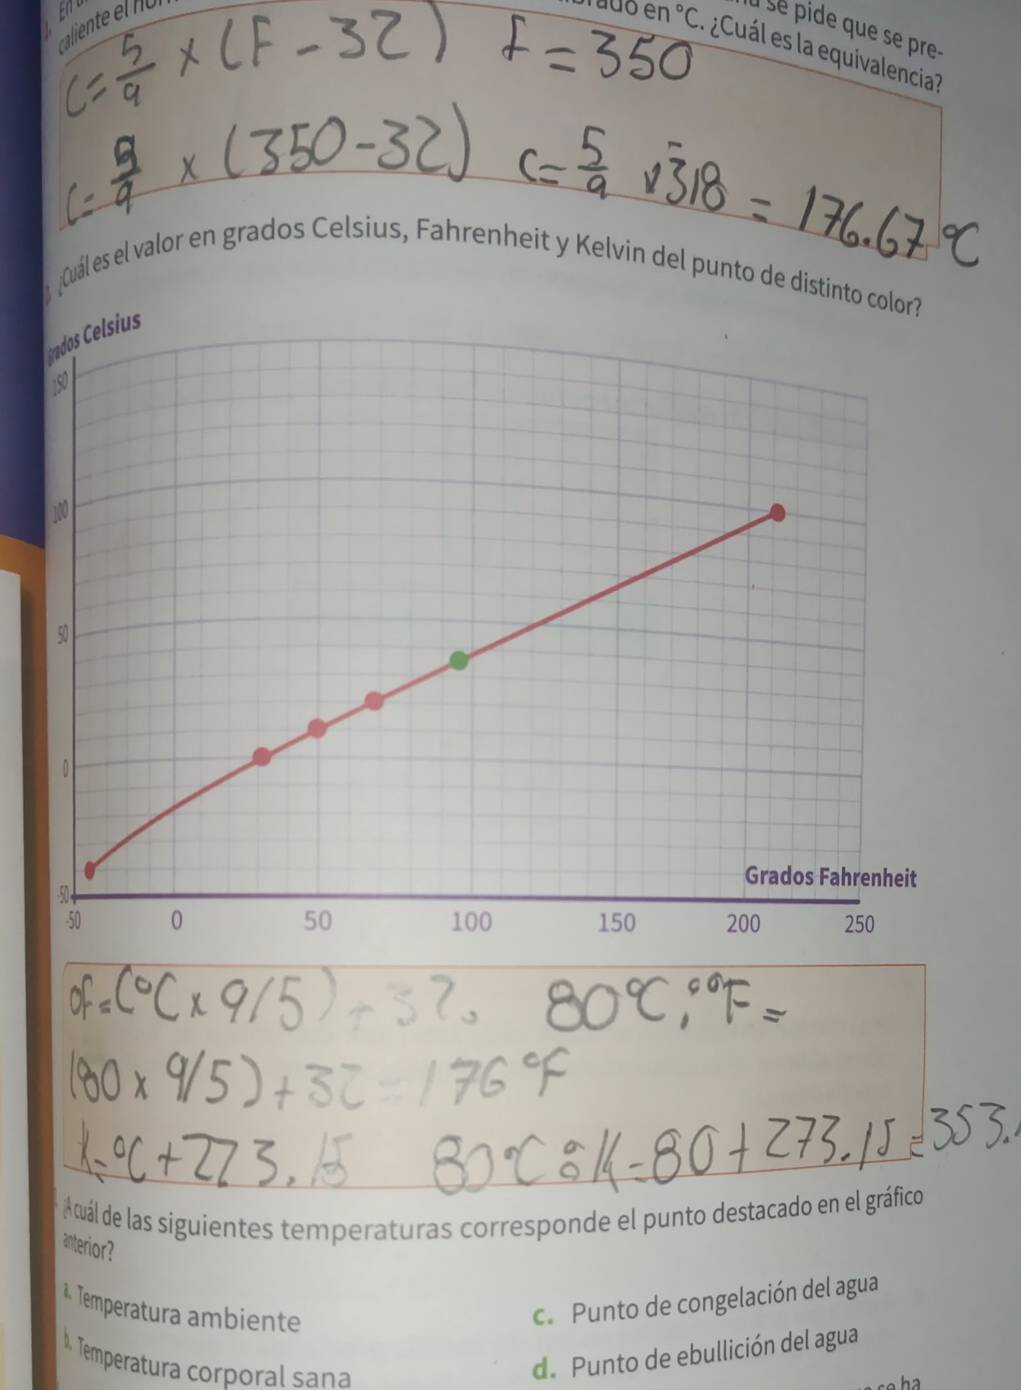 caliente el
se pide que se pre-
en °C. ¿Cuál es la equivalencia?
C = 5/9 × (F - 32) F = 350
C = 5/9 × (350 - 32) C = 5/9 × 318 = 176.67 °C
¿Cuál es el valor en grados Celsius, Fahrenheit y Kelvin del punto de distinto color?
Grados Celsius
150
100
50
0
-50
Grados Fahrenheit
-50 0 50 100 150 200 250
°F = (°C × 9/5) + 32. 80°C; °F =
(80 × 9/5) + 32 = 176 °F
K = °C + 273.15 80°C : K = 80 + 273.15 = 353.
¿A cuál de las siguientes temperaturas corresponde el punto destacado en el gráfico
anterior?
a. Temperatura ambiente
b. Temperatura corporal sana
c. Punto de congelación del agua
d. Punto de ebullición del agua
se ha